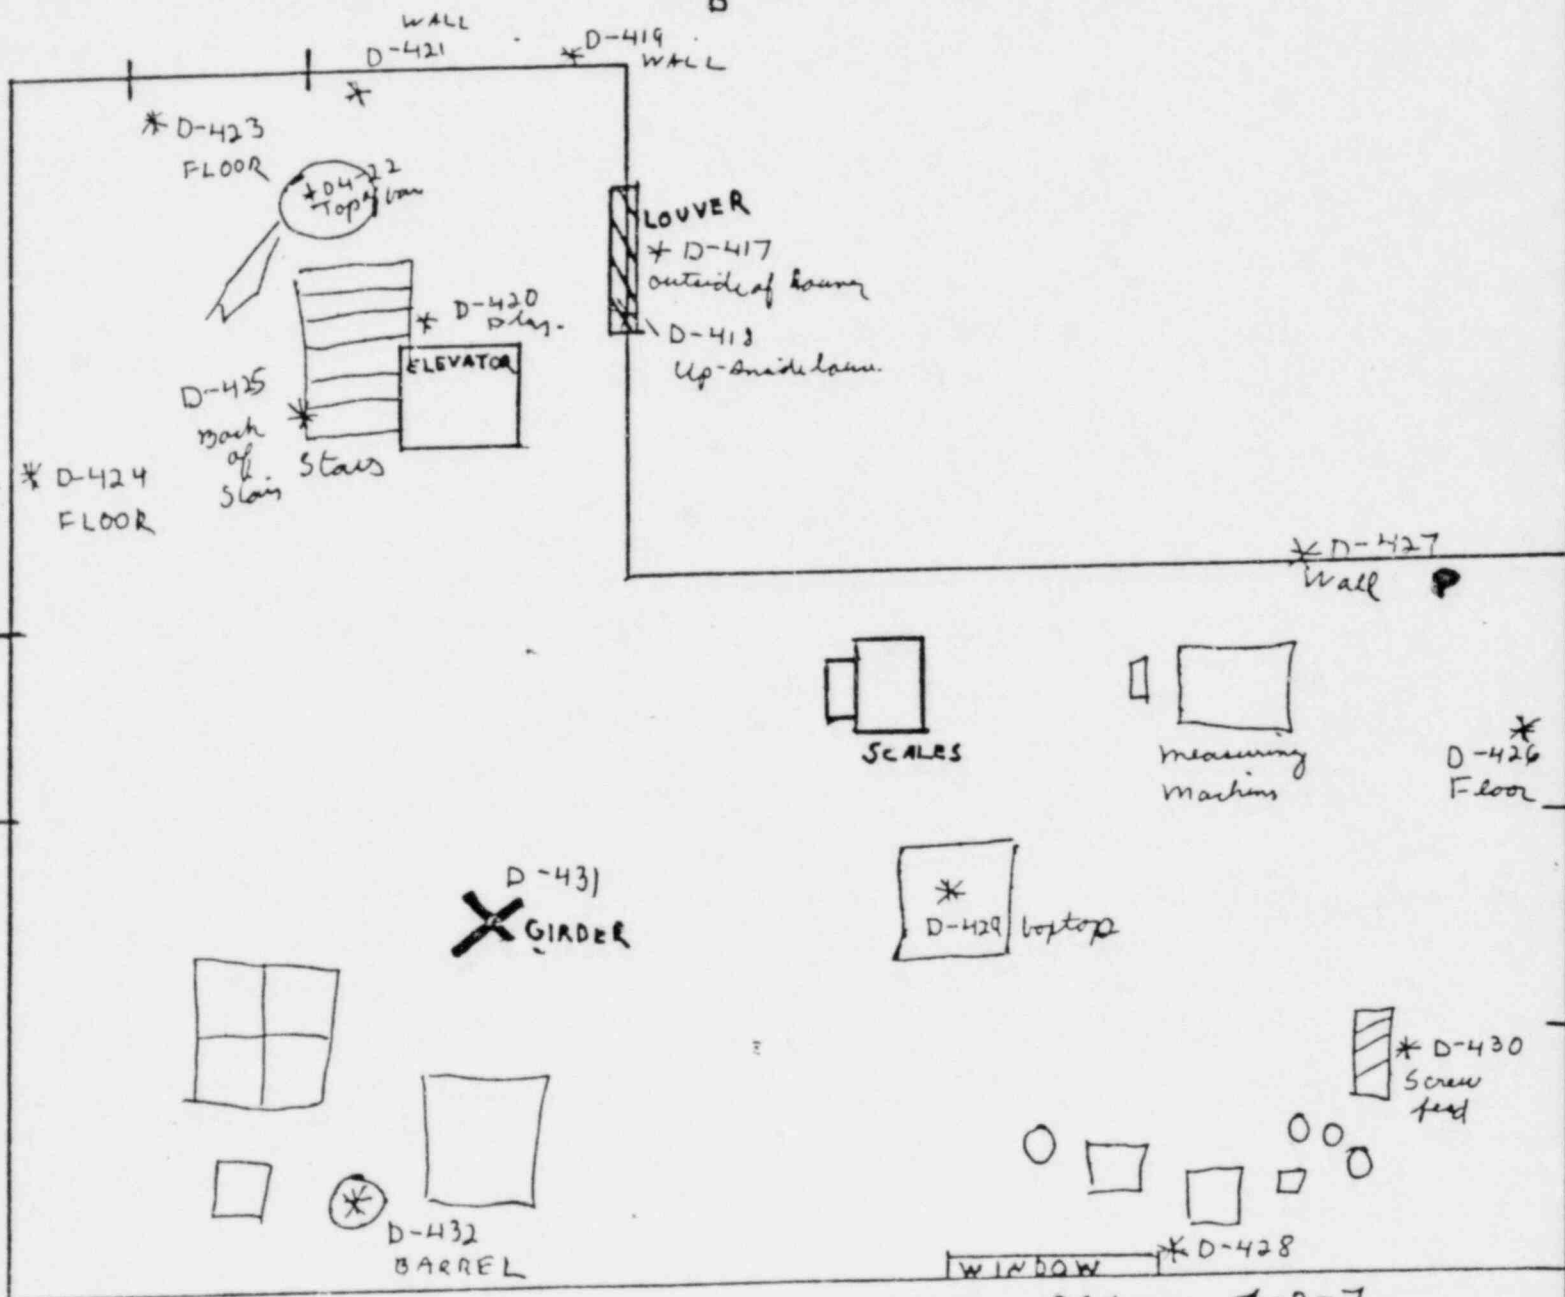 WALL
D-421
D-419
WALL
D-423
FLOOR
D4-22
Top of
LOUVER
D-417
outside of
D-418
Up-
D-420
ELEVATOR
D-425
Back
of
Stair
Stairs
D-424
FLOOR
D-427
Wall
P
SCALES
measuring
machine
D-426
Floor
D-431
GIRDER
D-429 boxtop
D-430
Screw
feed
D-432
BARREL
D-428
WINDOW